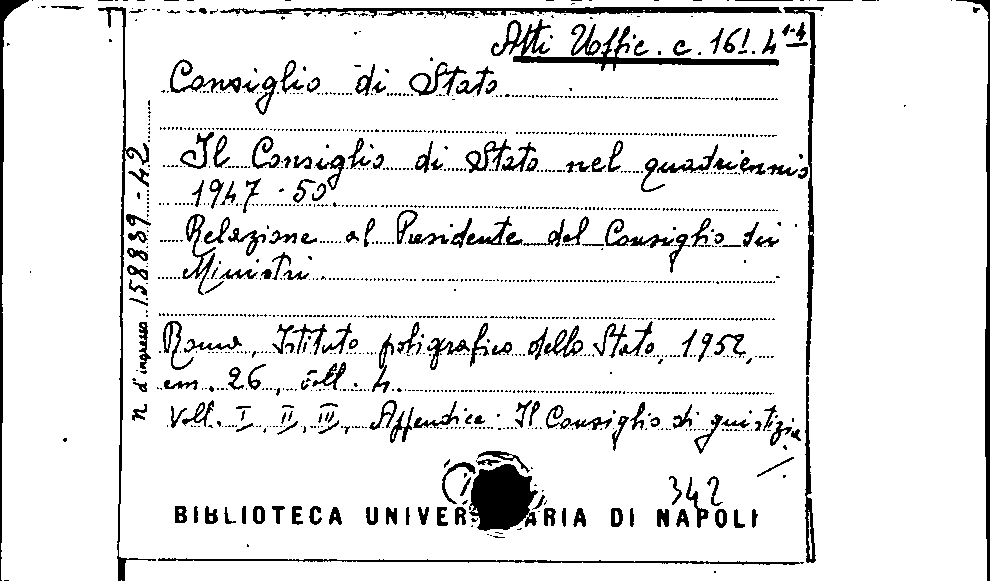 Atti Uffic. c. 161. 4 1-4
Consiglio di Stato.
Il Consiglio di Stato nel quadriennio
1947-50.
Relazione al Presidente del Consiglio dei
Ministri.
Roma, Istituto poligrafico dello Stato, 1952,
cm. 26, voll. 4.
Voll. I, II, III, Appendice: Il Consiglio di giustizia
342
BIBLIOTECA UNIVER ARIA DI NAPOLI
N. d'ingresso 158889-42